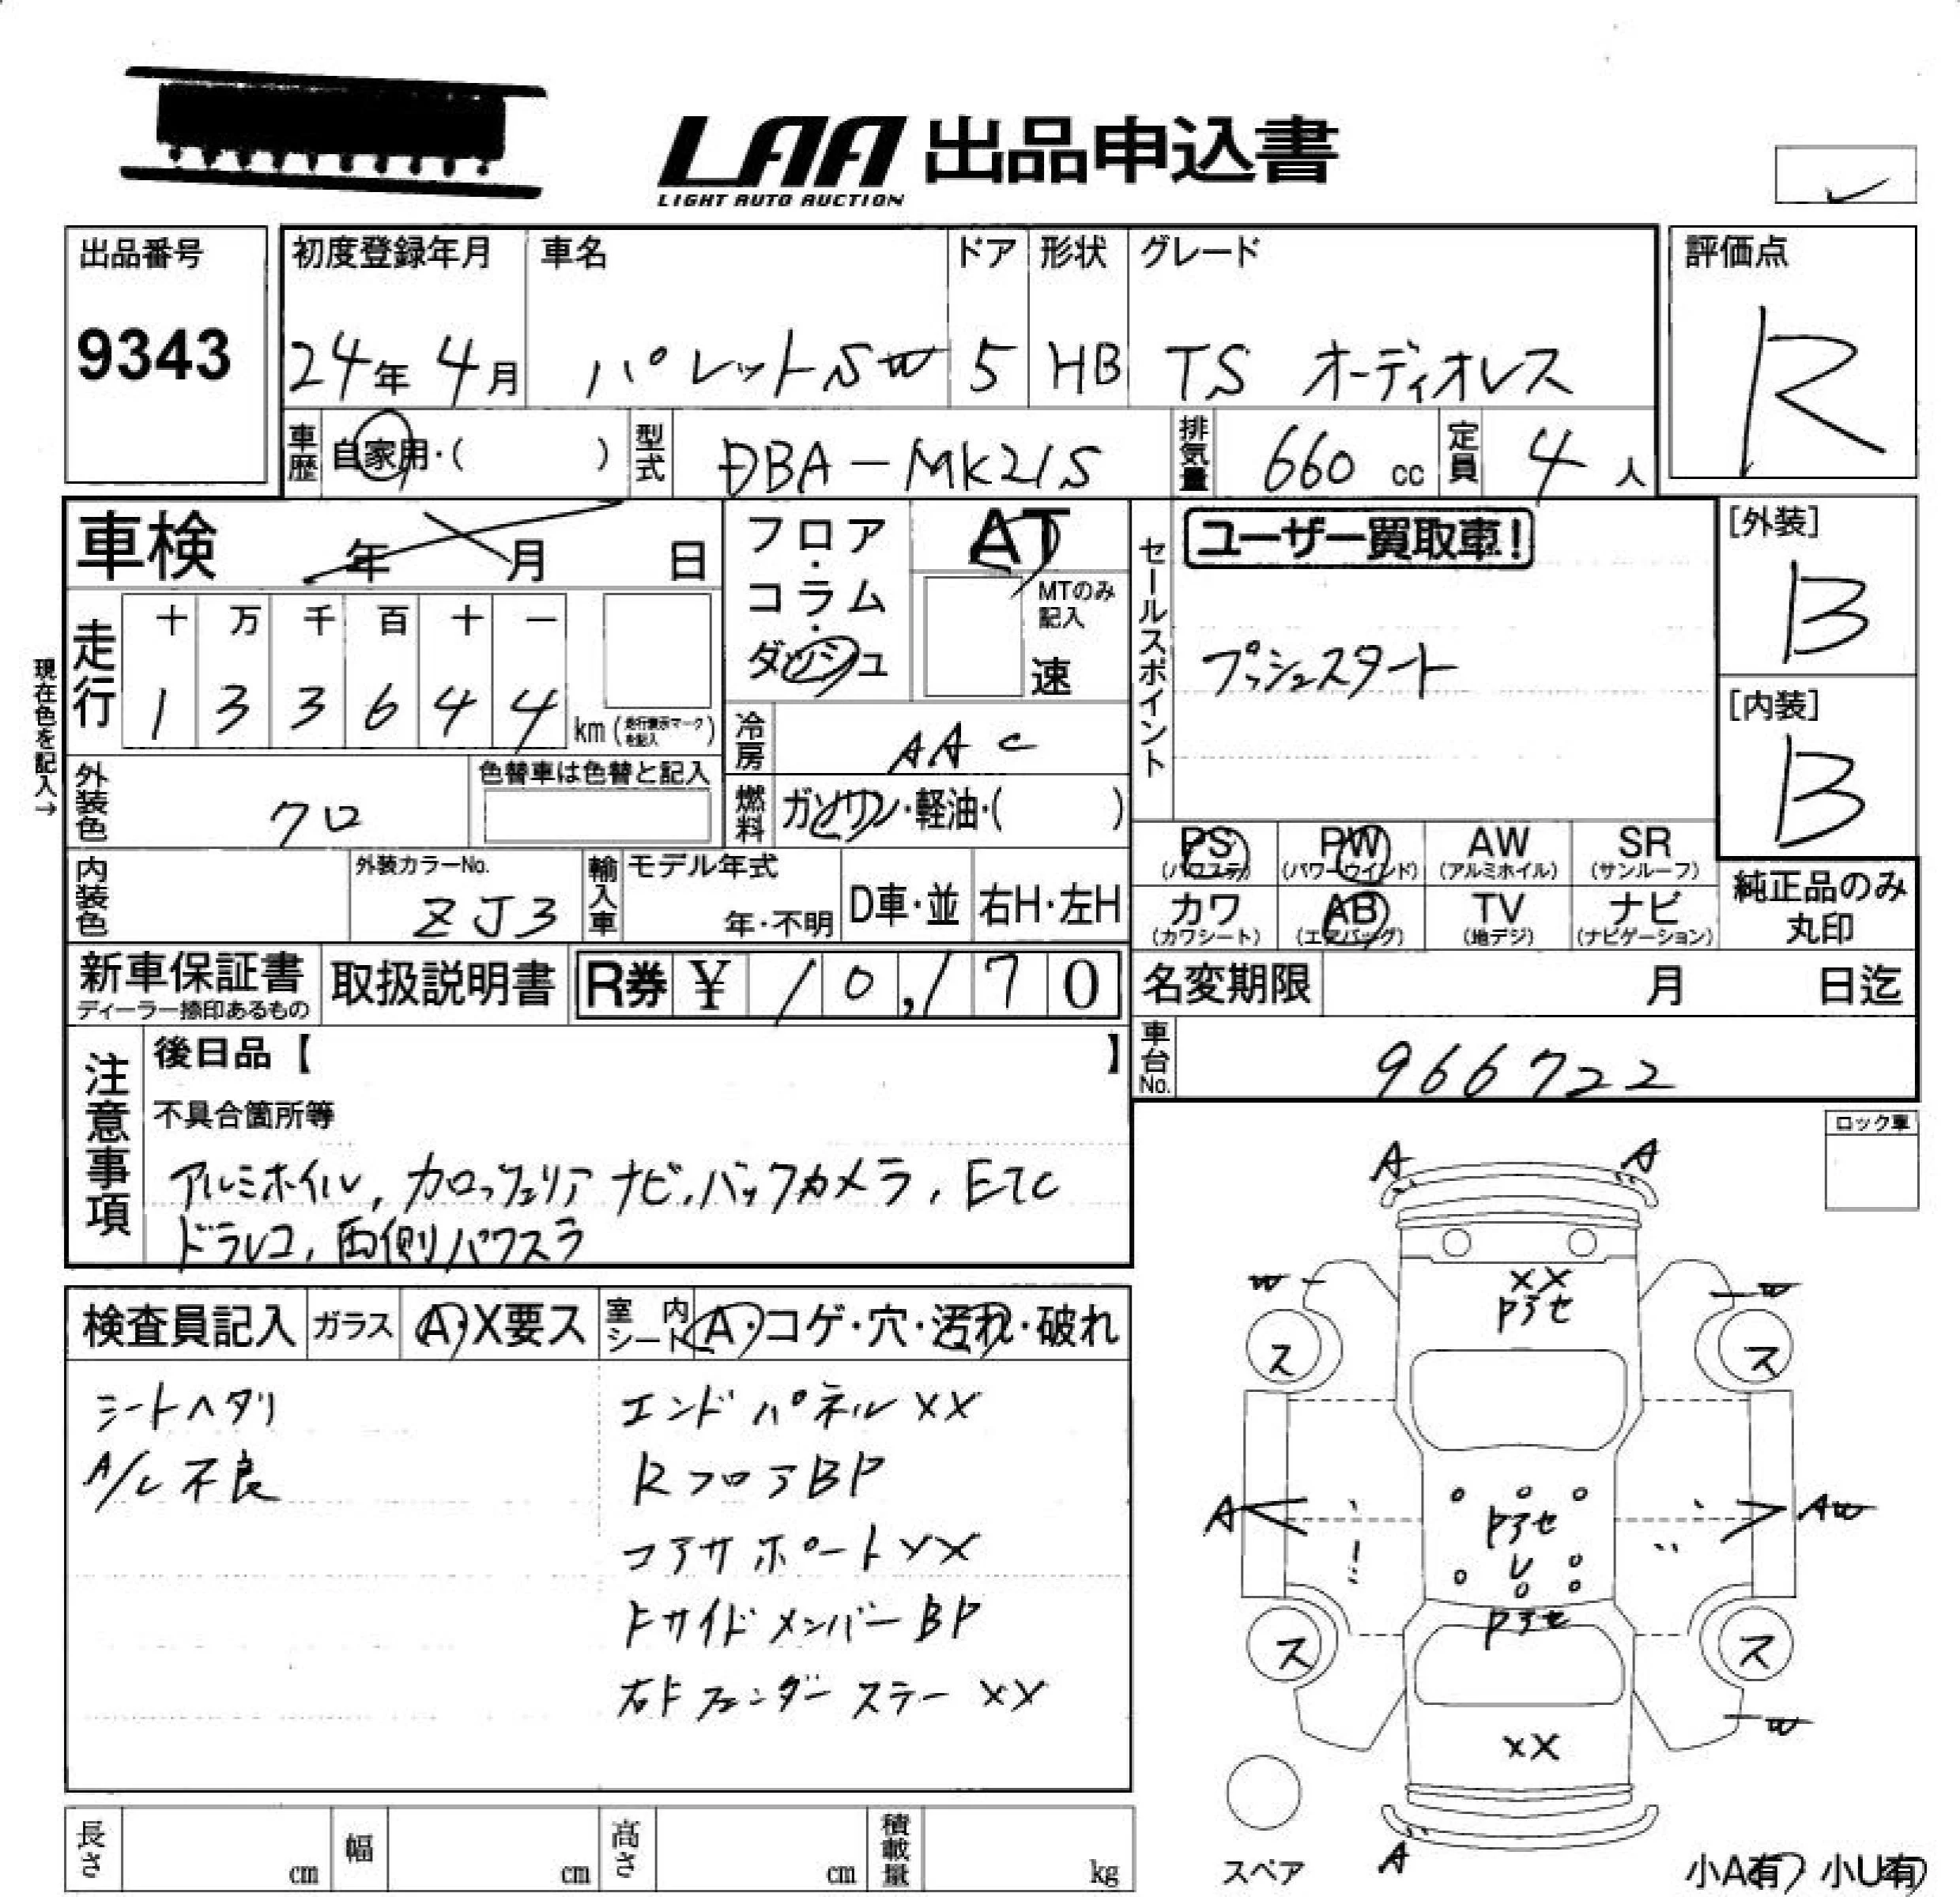 LAA 出品申込書
LIGHT AUTO AUCTION
出品番号
9343
初度登録年月 車名 ドア 形状 グレード
24年 4月 パレットSW 5 HB TS オーディオレス
評価点
R
車歴 自家用・( ) 型式 DBA-MK21S 排気量 660 cc 定員 4 人
車検 年 月 日
フロア・コラム・ダッシュ
AT
MTのみ記入
速
セールスポイント
ユーザー買取車!
プッシュスタート
[外装]
B
[内装]
B
現在色を記入→
走行
十 万 千 百 十 一
1 3 3 6 4 4 km (走行表示マークを記入)
冷房 AAC
外装色 クロ
色替車は色替と記入
燃料 ガソリン・軽油・( )
PS (パワステ) PW (パワーウインド) AW (アルミホイル) SR (サンルーフ)
カワ (カワシート) AB (エアバッグ) TV (地デジ) ナビ (ナビゲーション)
純正品のみ丸印
内装色
外装カラーNo.
ZJ3
輸入車 モデル年式
年・不明
D車・並 右H・左H
新車保証書
ディーラー捺印あるもの
取扱説明書
R券 ¥ 10,170
名変期限 月 日迄
車台No. 966722
注意事項
後日品【 】
不具合箇所等
アルミホイル,カロッツェリア ナビ,バックカメラ,ETC
ドラレコ,両側パワスラ
ロック車
検査員記入 ガラス A・X要ス 室内シート A・コゲ・穴・汚れ・破れ
シートヘタリ
A/C 不良
エンドパネル XX
RフロアBP
コアサポート XX
FサイドメンバーBP
右Fフェンダーステー XX
A A
XX
Pアセ
W W
ス ス
A AW
Pアセ
U
Pアセ
ス ス
W
XX
A
スペア
小A有 小U有
長さ cm 幅 cm 高さ cm 積載量 kg